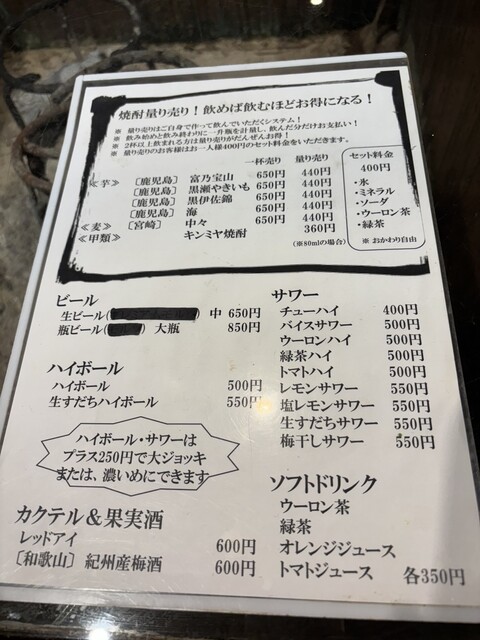 焼酎量り売り！飲めば飲むほどお得になる！
※ 量り売りはご自身で作って飲んでいただくシステム！
※ 飲み始めと飲み終わりに一升瓶を計量し、飲んだ分だけお支払い！
※ 2杯以上飲まれる方は量り売りがだんぜんお得！
※ 量り売りのお客様はお一人様400円のセット料金をいただきます。
一杯売り 量り売り
≪芋≫ 〔鹿児島〕 富乃宝山 650円 440円
〔鹿児島〕 黒瀬やきいも 650円 440円
〔鹿児島〕 黒伊佐錦 650円 440円
〔鹿児島〕 海 650円 440円
≪麦≫ 〔宮崎〕 中々 650円 440円
≪甲類≫ キンミヤ焼酎 360円
(※80mlの場合)
セット料金
400円
・氷
・ミネラル
・ソーダ
・ウーロン茶
・緑茶
※ おかわり自由
ビール
生ビール( ) 中 650円
瓶ビール( ) 大瓶 850円
ハイボール
ハイボール 500円
生すだちハイボール 550円
ハイボール・サワーは
プラス250円で大ジョッキ
または、濃いめにできます
カクテル＆果実酒
レッドアイ 600円
〔和歌山〕 紀州産梅酒 600円
サワー
チューハイ 400円
バイスサワー 500円
ウーロンハイ 500円
緑茶ハイ 500円
トマトハイ 500円
レモンサワー 550円
塩レモンサワー 550円
生すだちサワー 550円
梅干しサワー 550円
ソフトドリンク
ウーロン茶
緑茶
オレンジジュース
トマトジュース 各350円